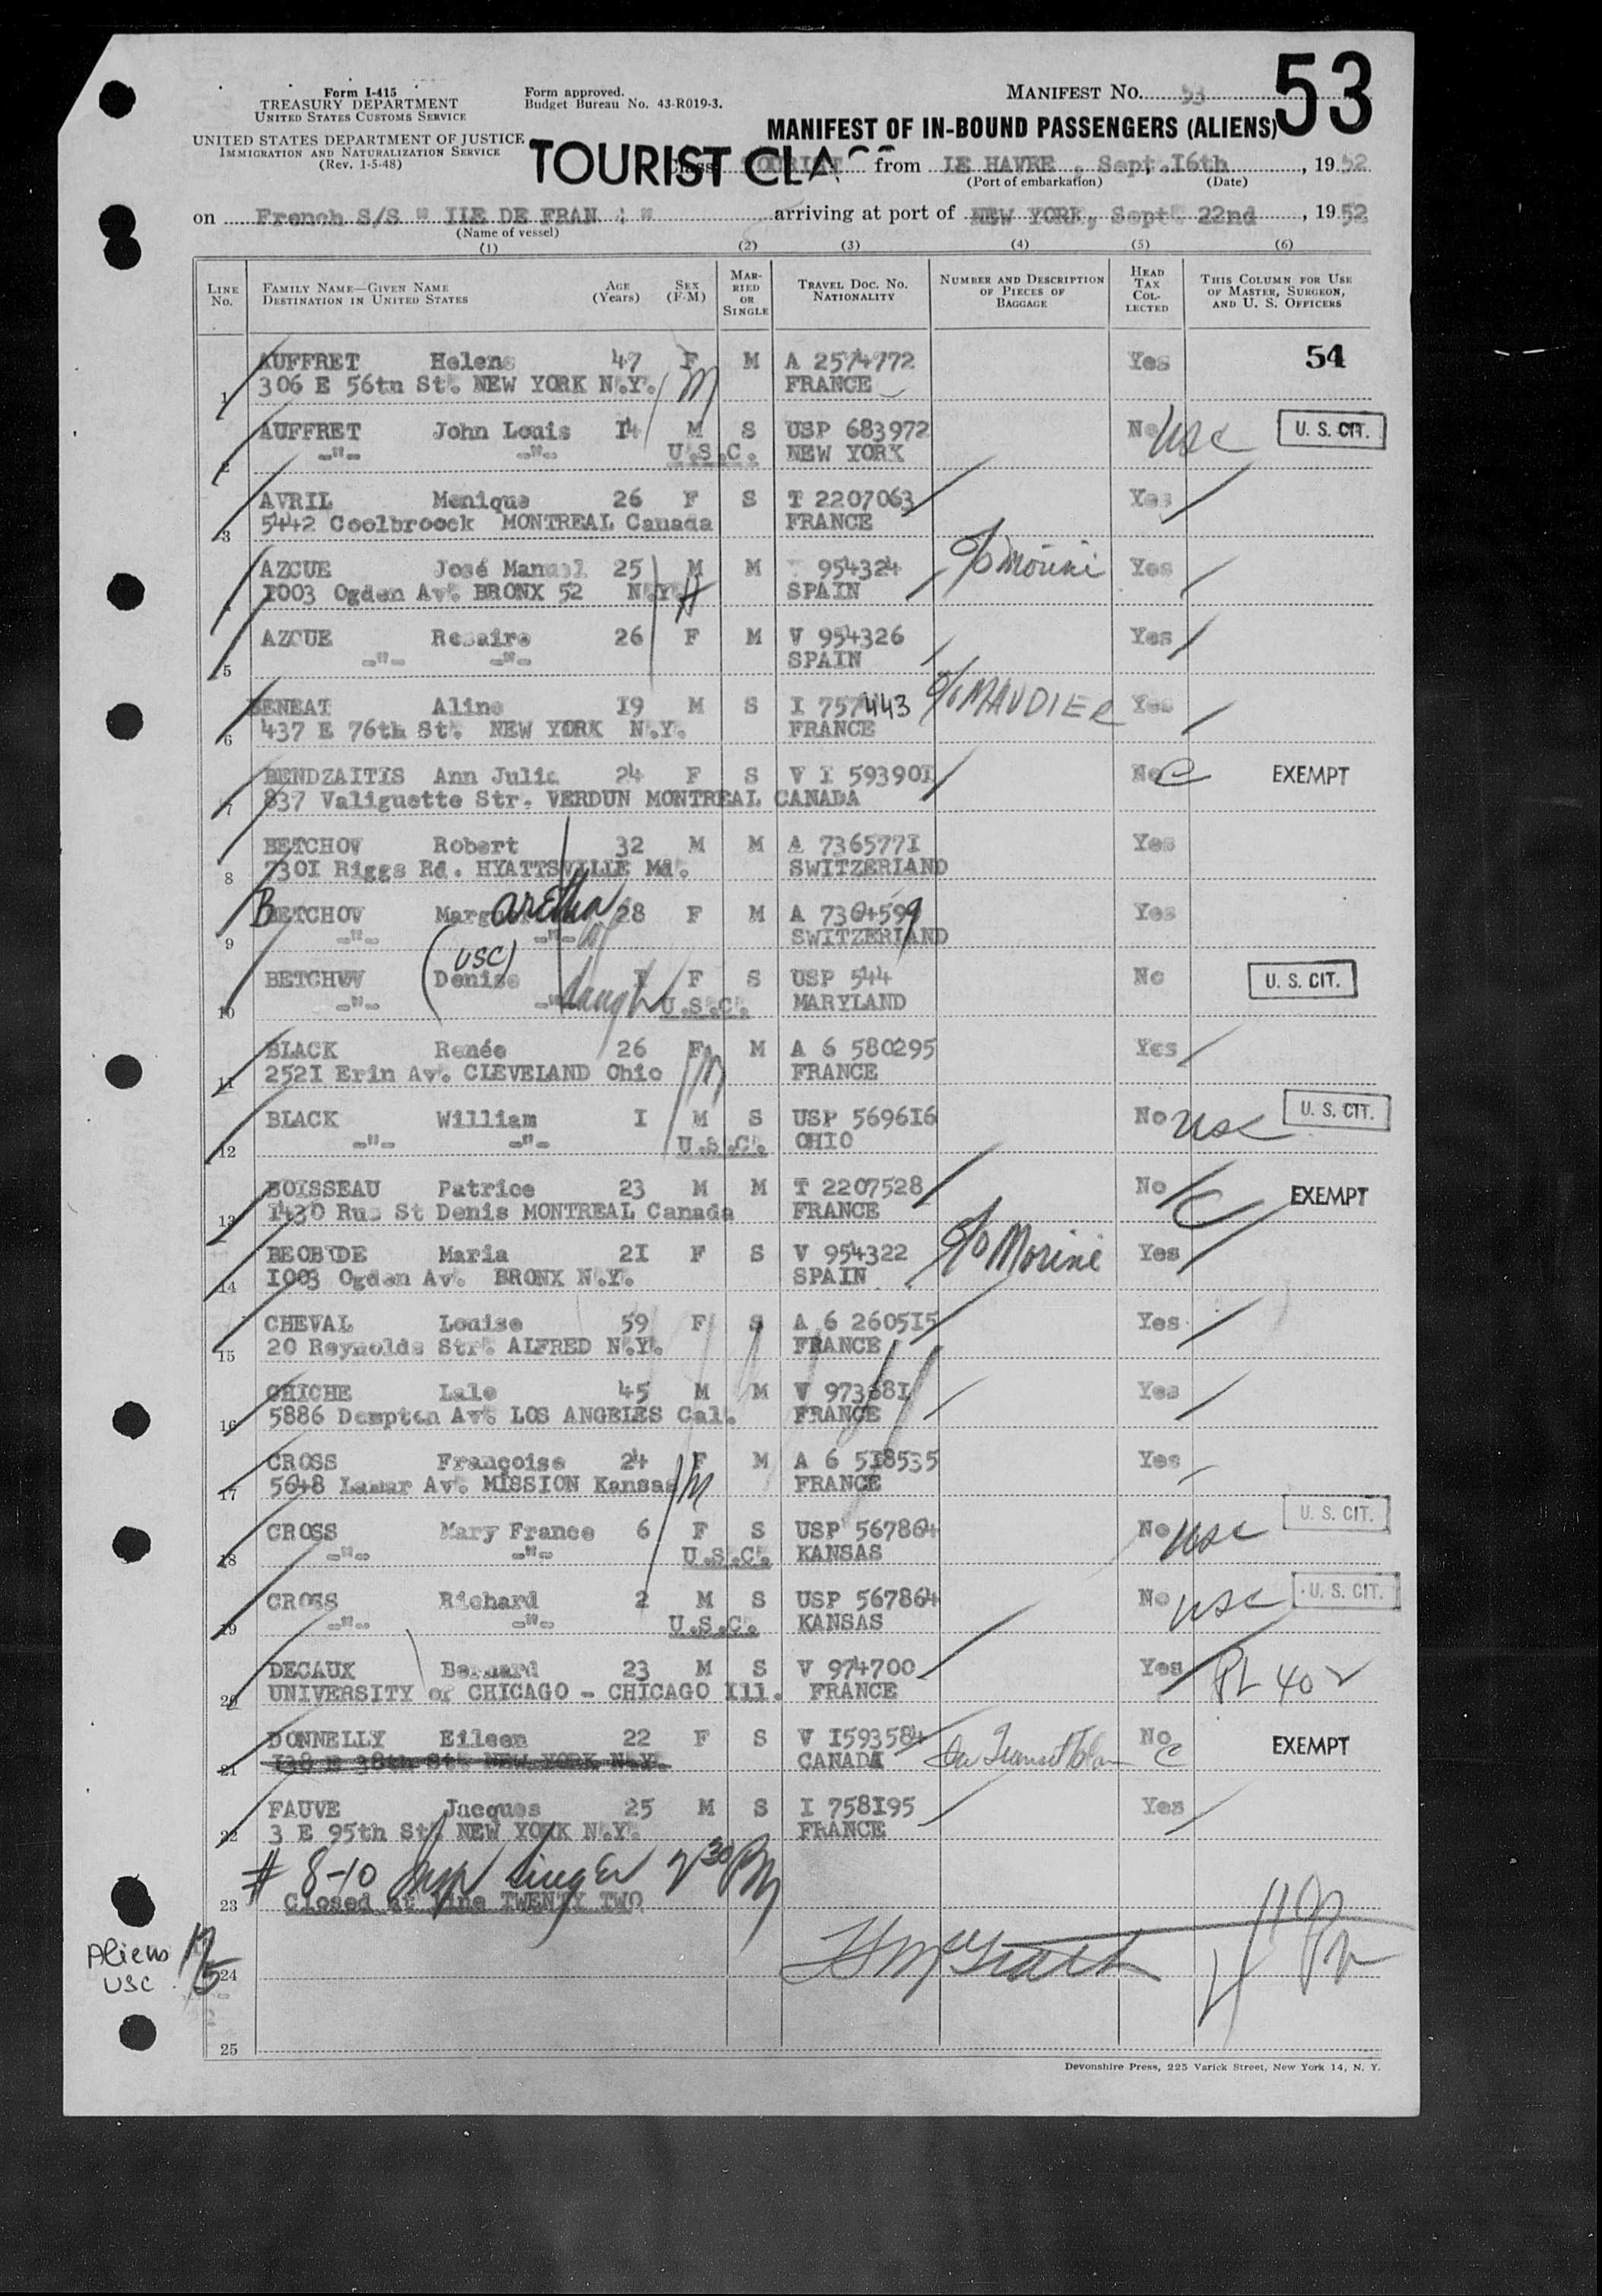 Form I-415
TREASURY DEPARTMENT
UNITED STATES CUSTOMS SERVICE
UNITED STATES DEPARTMENT OF JUSTICE
IMMIGRATION AND NATURALIZATION SERVICE
(Rev. 1-5-48)
Form approved.
Budget Bureau No. 43-R019-3.
MANIFEST No. 53
53
MANIFEST OF IN-BOUND PASSENGERS (ALIENS)
TOURIST CLASS
Class TOURIST from LE HAVRE, Sept. 16th, 1952
(Port of embarkation) (Date)
on French S/S " ILE DE FRAN " arriving at port of NEW YORK, Sept 22nd, 1952
(Name of vessel)
(1) (2) (3) (4) (5) (6)
LINE No. FAMILY NAME—GIVEN NAME DESTINATION IN UNITED STATES AGE (Years) SEX (F-M) MARRIED OR SINGLE TRAVEL DOC. NO. NATIONALITY NUMBER AND DESCRIPTION OF PIECES OF BAGGAGE HEAD TAX COLLECTED THIS COLUMN FOR USE OF MASTER, SURGEON, AND U. S. OFFICERS
AUFFRET Helene 47 F M A 2574772 Yes 54
1 306 E 56th St. NEW YORK N.Y. M FRANCE
AUFFRET John Louis 14 M S USP 683972 No usc U. S. CIT.
2 -"- -"- U.S.C. NEW YORK
AVRIL Monique 26 F S T 2207063 Yes
3 5442 Coolbroock MONTREAL Canada FRANCE
AZCUE José Manuel 25 M M 954324 c/o Morini Yes
4 1003 Ogden Av. BRONX 52 N.Y. H SPAIN
AZCUE Rosaire 26 F M V 954326 Yes
5 -"- -"- SPAIN
BENEAT Aline 19 M S I 757443 c/o MAUDIER Yes
6 437 E 76th St. NEW YORK N.Y. FRANCE
BENDZAITIS Ann Julia 24 F S V I 593901 No C EXEMPT
7 837 Valiguette Str. VERDUN MONTREAL CANADA
BETCHOV Robert 32 M M A 7365771 Yes
8 7301 Riggs Rd. HYATTSVILLE Md. SWITZERLAND
BETCHOV Marg aretha 28 F M A 7364599 Yes
9 -"- -"- SWITZERLAND
(USC)
BETCHOV (Denise F S USP 544 No U. S. CIT.
10 -"- -"- daugh U.S.C. MARYLAND
BLACK Renée 26 F M A 6 580295 Yes
11 2521 Erin Av. CLEVELAND Ohio M FRANCE
BLACK William 1 M S USP 569616 No usc U. S. CIT.
12 -"- -"- U.S.C. OHIO
BOISSEAU Patrice 23 M M T 2207528 No C EXEMPT
13 1430 Rue St Denis MONTREAL Canada FRANCE
BEOBIDE Maria 21 F S V 954322 c/o Morini Yes
14 1003 Ogden Av. BRONX N.Y. SPAIN
CHEVAL Louise 59 F S A 6 260515 Yes
15 20 Reynolds Str. ALFRED N.Y. FRANCE
CHICHE Lalo 45 M M V 973681 Yes
16 5886 Dempton Av. LOS ANGELES Cal. FRANCE
CROSS Françoise 24 F M A 6 518535 Yes
17 5648 Lamar Av. MISSION Kansas M FRANCE
CROSS Mary France 6 F S USP 567864 No usc U. S. CIT.
18 -"- -"- U.S.C. KANSAS
CROSS Richard 2 M S USP 567864 No usc U. S. CIT.
19 -"- -"- U.S.C. KANSAS
DECAUX Bernard 23 M S V 974700 Yes PL 402
20 UNIVERSITY of CHICAGO - CHICAGO Ill. FRANCE
DONNELLY Eileen 22 F S V 1593584 No C EXEMPT
21 138 E 38th St. NEW YORK N.Y. CANADA
FAUVE Jacques 25 M S I 758195 Yes
22 3 E 95th St. NEW YORK N.Y. FRANCE
# 8-10 2 30 PM
23 Closed at line TWENTY TWO
Aliens 17
USC 5
24
25
Devonshire Press, 225 Varick Street, New York 14, N. Y.